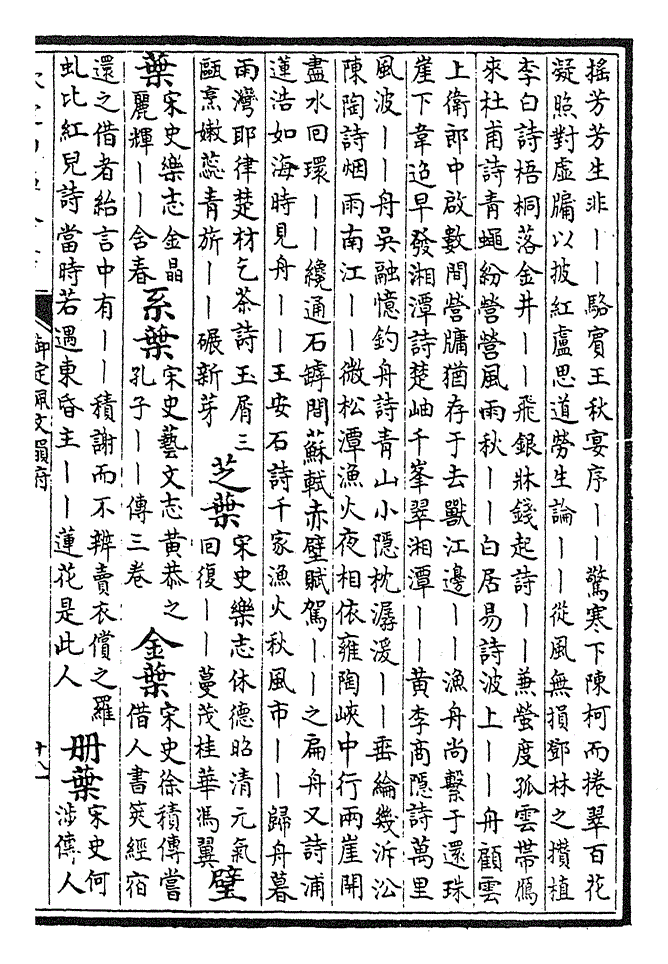 搖芳芳生非——駱賓王秋宴序——驚寒下陳柯而捲翠百花
凝照對虛牖以披紅盧思道勞生論——從風無損鄧林之攢植
李白詩梧桐落金井——飛銀牀錢起詩——兼螢度孤雲帶鴈
來杜甫詩青蠅紛營營風雨秋——白居易詩波上——舟顧雲
上衛郎中啟數間營牗猶存于去獸江邊——漁舟尚繫于還珠
崖下韋迢早發湘潭詩楚岫千峯翠湘潭——黄李商隱詩萬里
風波——舟吳融憶釣舟詩青山小隠枕潺湲——垂綸幾泝沿
陳陶詩烟雨南江——微松潭漁火夜相依雍陶峽中行兩崖開
盡水回環——纔通石罅間蘇軾赤壁賦駕——之扁舟又詩浦
蓮浩如海時見舟——王安石詩千家漁火秋風市——歸舟暮
雨灣耶律楚材乞茶詩玉屑三
甌烹嫩蕊青旂——碾新芽
芝葉
宋史樂志休德昭清元氣
回復——蔓茂桂華馮翼
璧
葉
宋史樂志金晶
麗輝——含春
系葉
宋史藝文志黃恭之
孔子——傳三卷
金葉
宋史徐積傳嘗
借人書筴經宿
還之借者紿言中有——積謝而不辨賣衣償之羅
虬比紅兒詩當時若遇東昏主——蓮花是此人
册葉
宋史何
涉傳人
御定佩文韻府